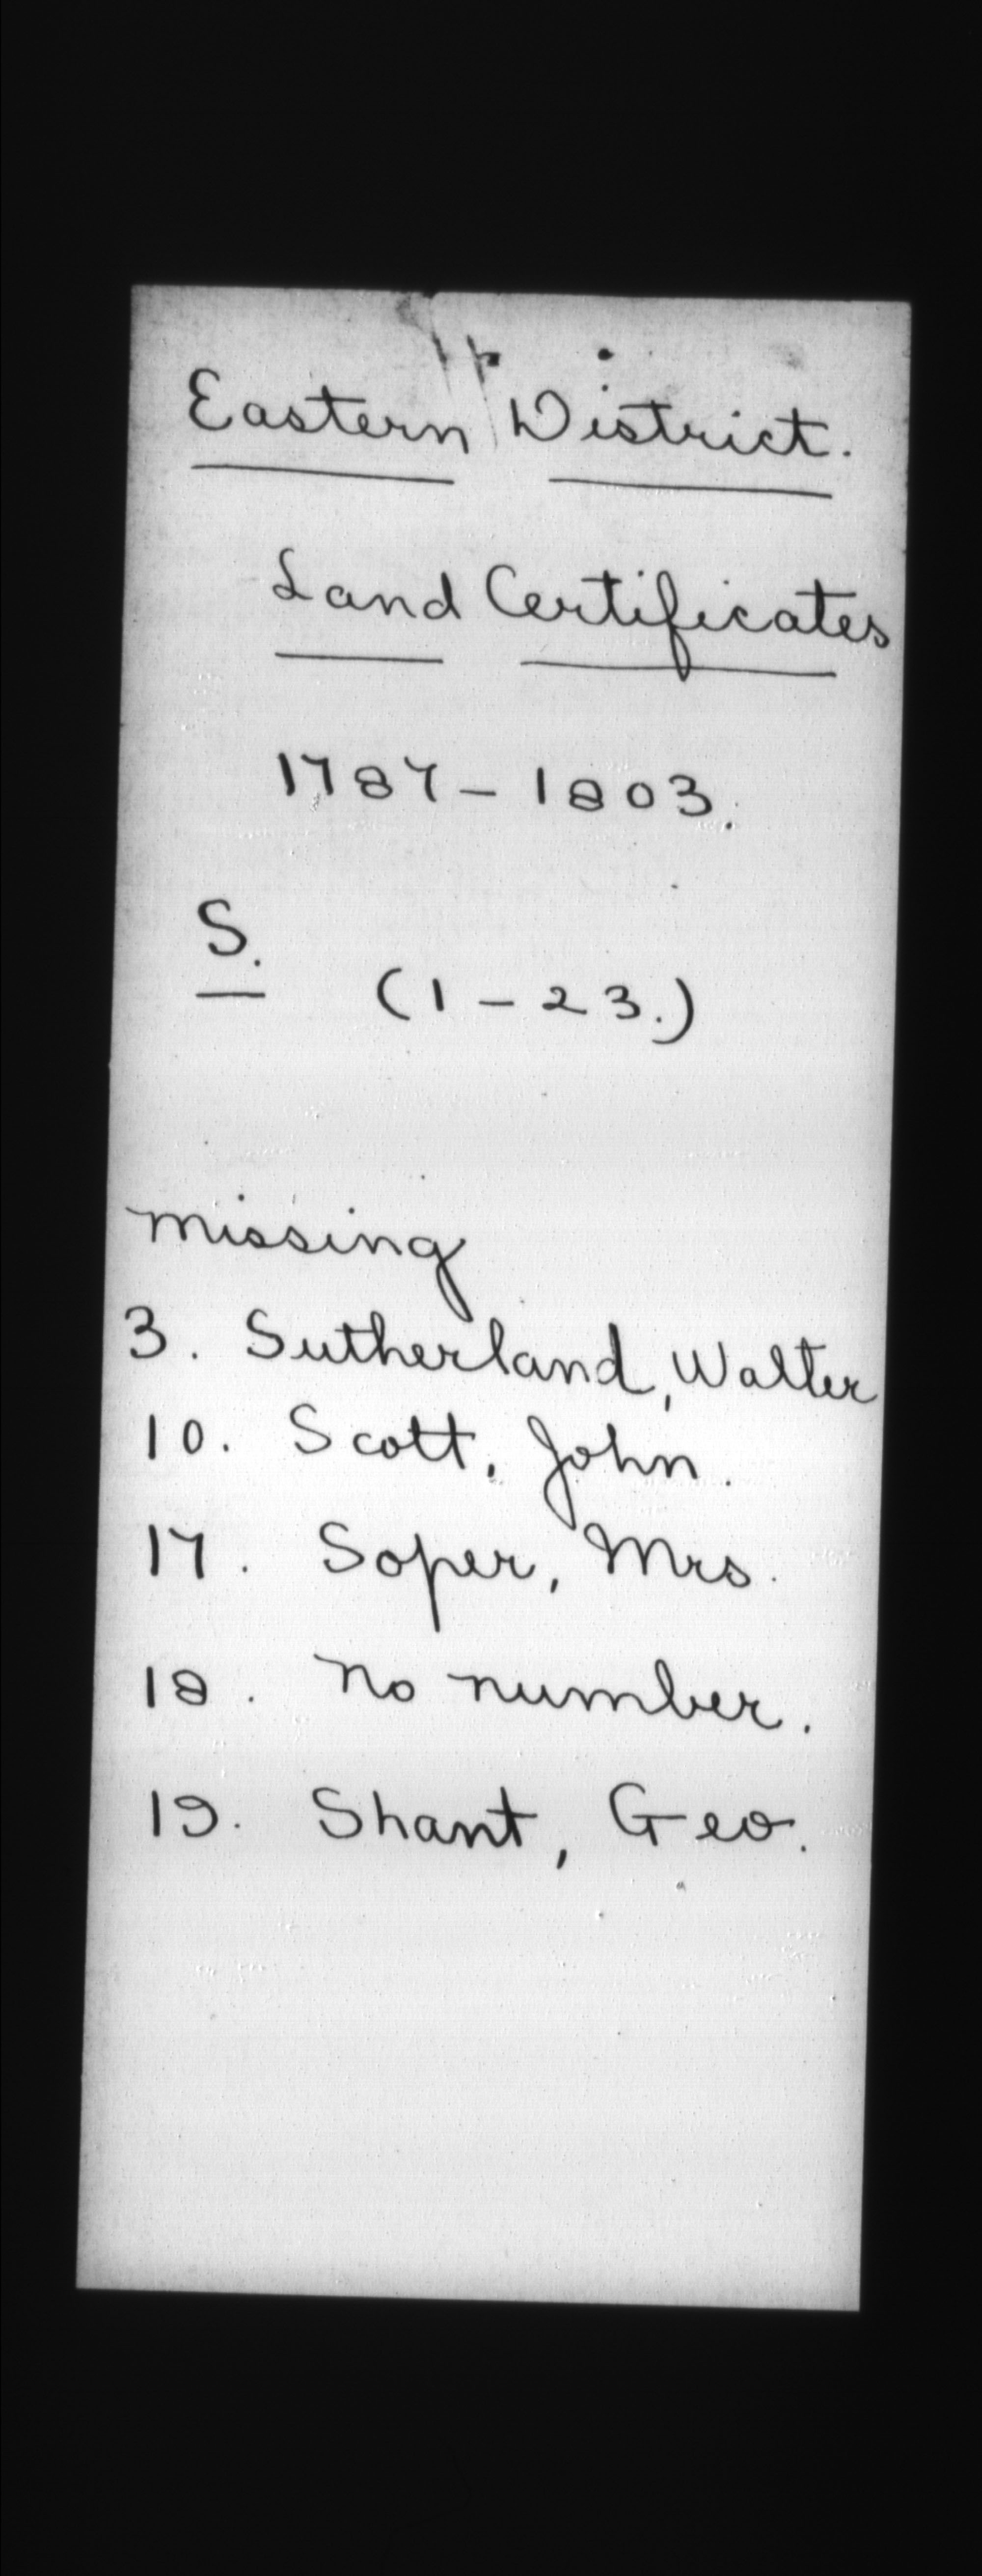 Eastern District.
Land Certificates
1787 - 1803.
S.
(1 - 23.)
missing
3. Sutherland, Walter
10. Scott, John.
17. Soper, Mrs.
18. No number.
19. Shant, Geo.